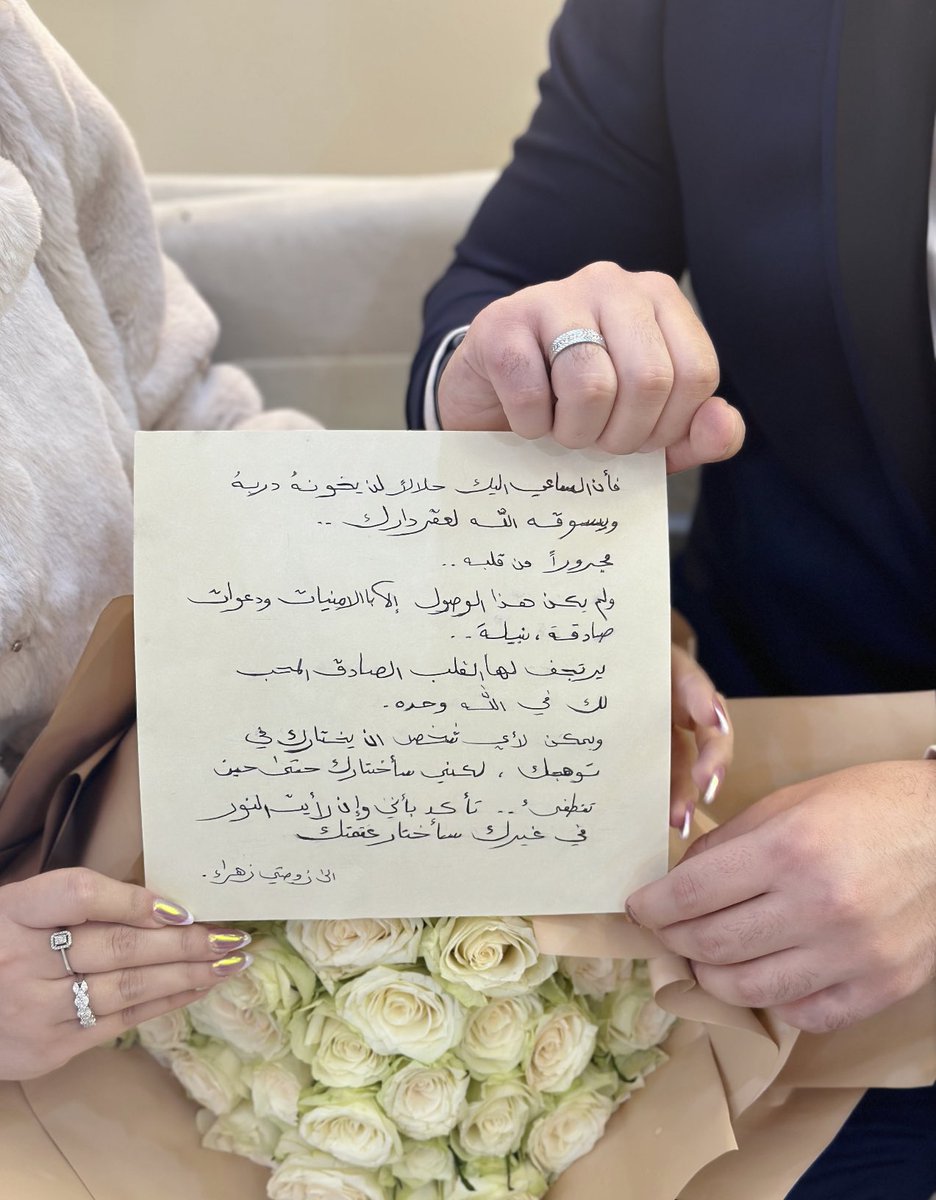 فأن الساعي اليك حلالاً لن يخونهُ دربهُ
ويسوقه الله لعقر دارك ..
مجروراً من قلبه ..
ولم يكن هذا الوصول إلا بالامنيات ودعوات
صادقة ، نبيلة ..
يرتجف لها القلب الصادق المحب
لك في الله وحده .
ويمكن لأي شخص ان يختارك في
توهجك ، لكني سأختارك حتى حين
تنطفىُ .. تأكد بأني وإن رأيت النور
في غيرك سأختار عتمتك
الى زوجتي زهراء .